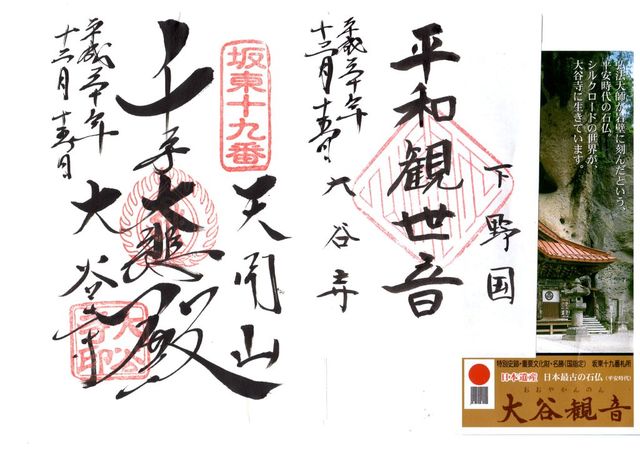 弘法大師が石壁に刻んだという、
平安時代の石仏。
シルクロードの世界が、
大谷寺に生きています。
特別史跡・重要文化財・名勝(国指定) 坂東十九番札所
日本遺産 日本最古の石仏(平安時代)
おおやかんのん
大谷観音
下野国
平和観世音
大谷寺
平成三十年
十二月十五日
坂東十九番
天開山
千手大悲殿
大谷寺
平成三十年
十二月十五日